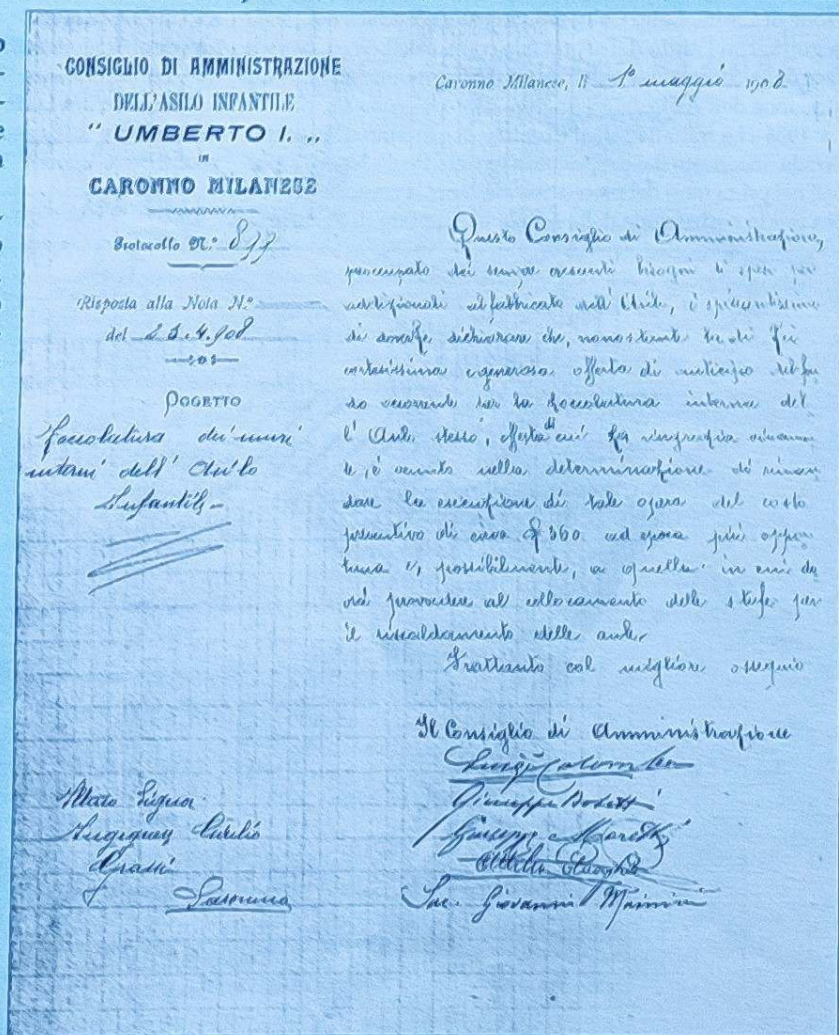 CONSIGLIO DI AMMINISTRAZIONE
DELL'ASILO INFANTILE
" UMBERTO I. „
IN
CARONNO MILANESE
Protocollo N.° 877
Risposta alla Nota N.°
del 25.4.908
OGGETTO
Zoccolatura dei muri
interni dell' Asilo
Infantile -
Caronno Milanese, li 1° maggio 1908
Questo Consiglio di Amministrazione,
preoccupato dei sempre crescenti bisogni di spese per
addizionali al fabbricato dell' Asilo, è spiacentissimo
di dover dichiarare che, nonostante la di Lei
cortesissima e generosa offerta di anticipo del
occorrente per la zoccolatura interna del
l' Asilo stesso, offerta di cui La ringrazia
è venuto nella determinazione di riman
dare la esecuzione di tale opera del costo
preventivo di circa £ 360 ad epoca più oppor
tuna e, possibilmente, a quella in cui do
vrà provvedere al collocamento delle stufe per
il riscaldamento delle aule.
Frattanto col migliore ossequio
Il Consiglio di Amministrazione
Luigi Colombo
Giuseppe
Giuseppe Moretti
Attilio
Sac. Giovanni Mainini
Signor
Ingegner
Grassi
Saronno